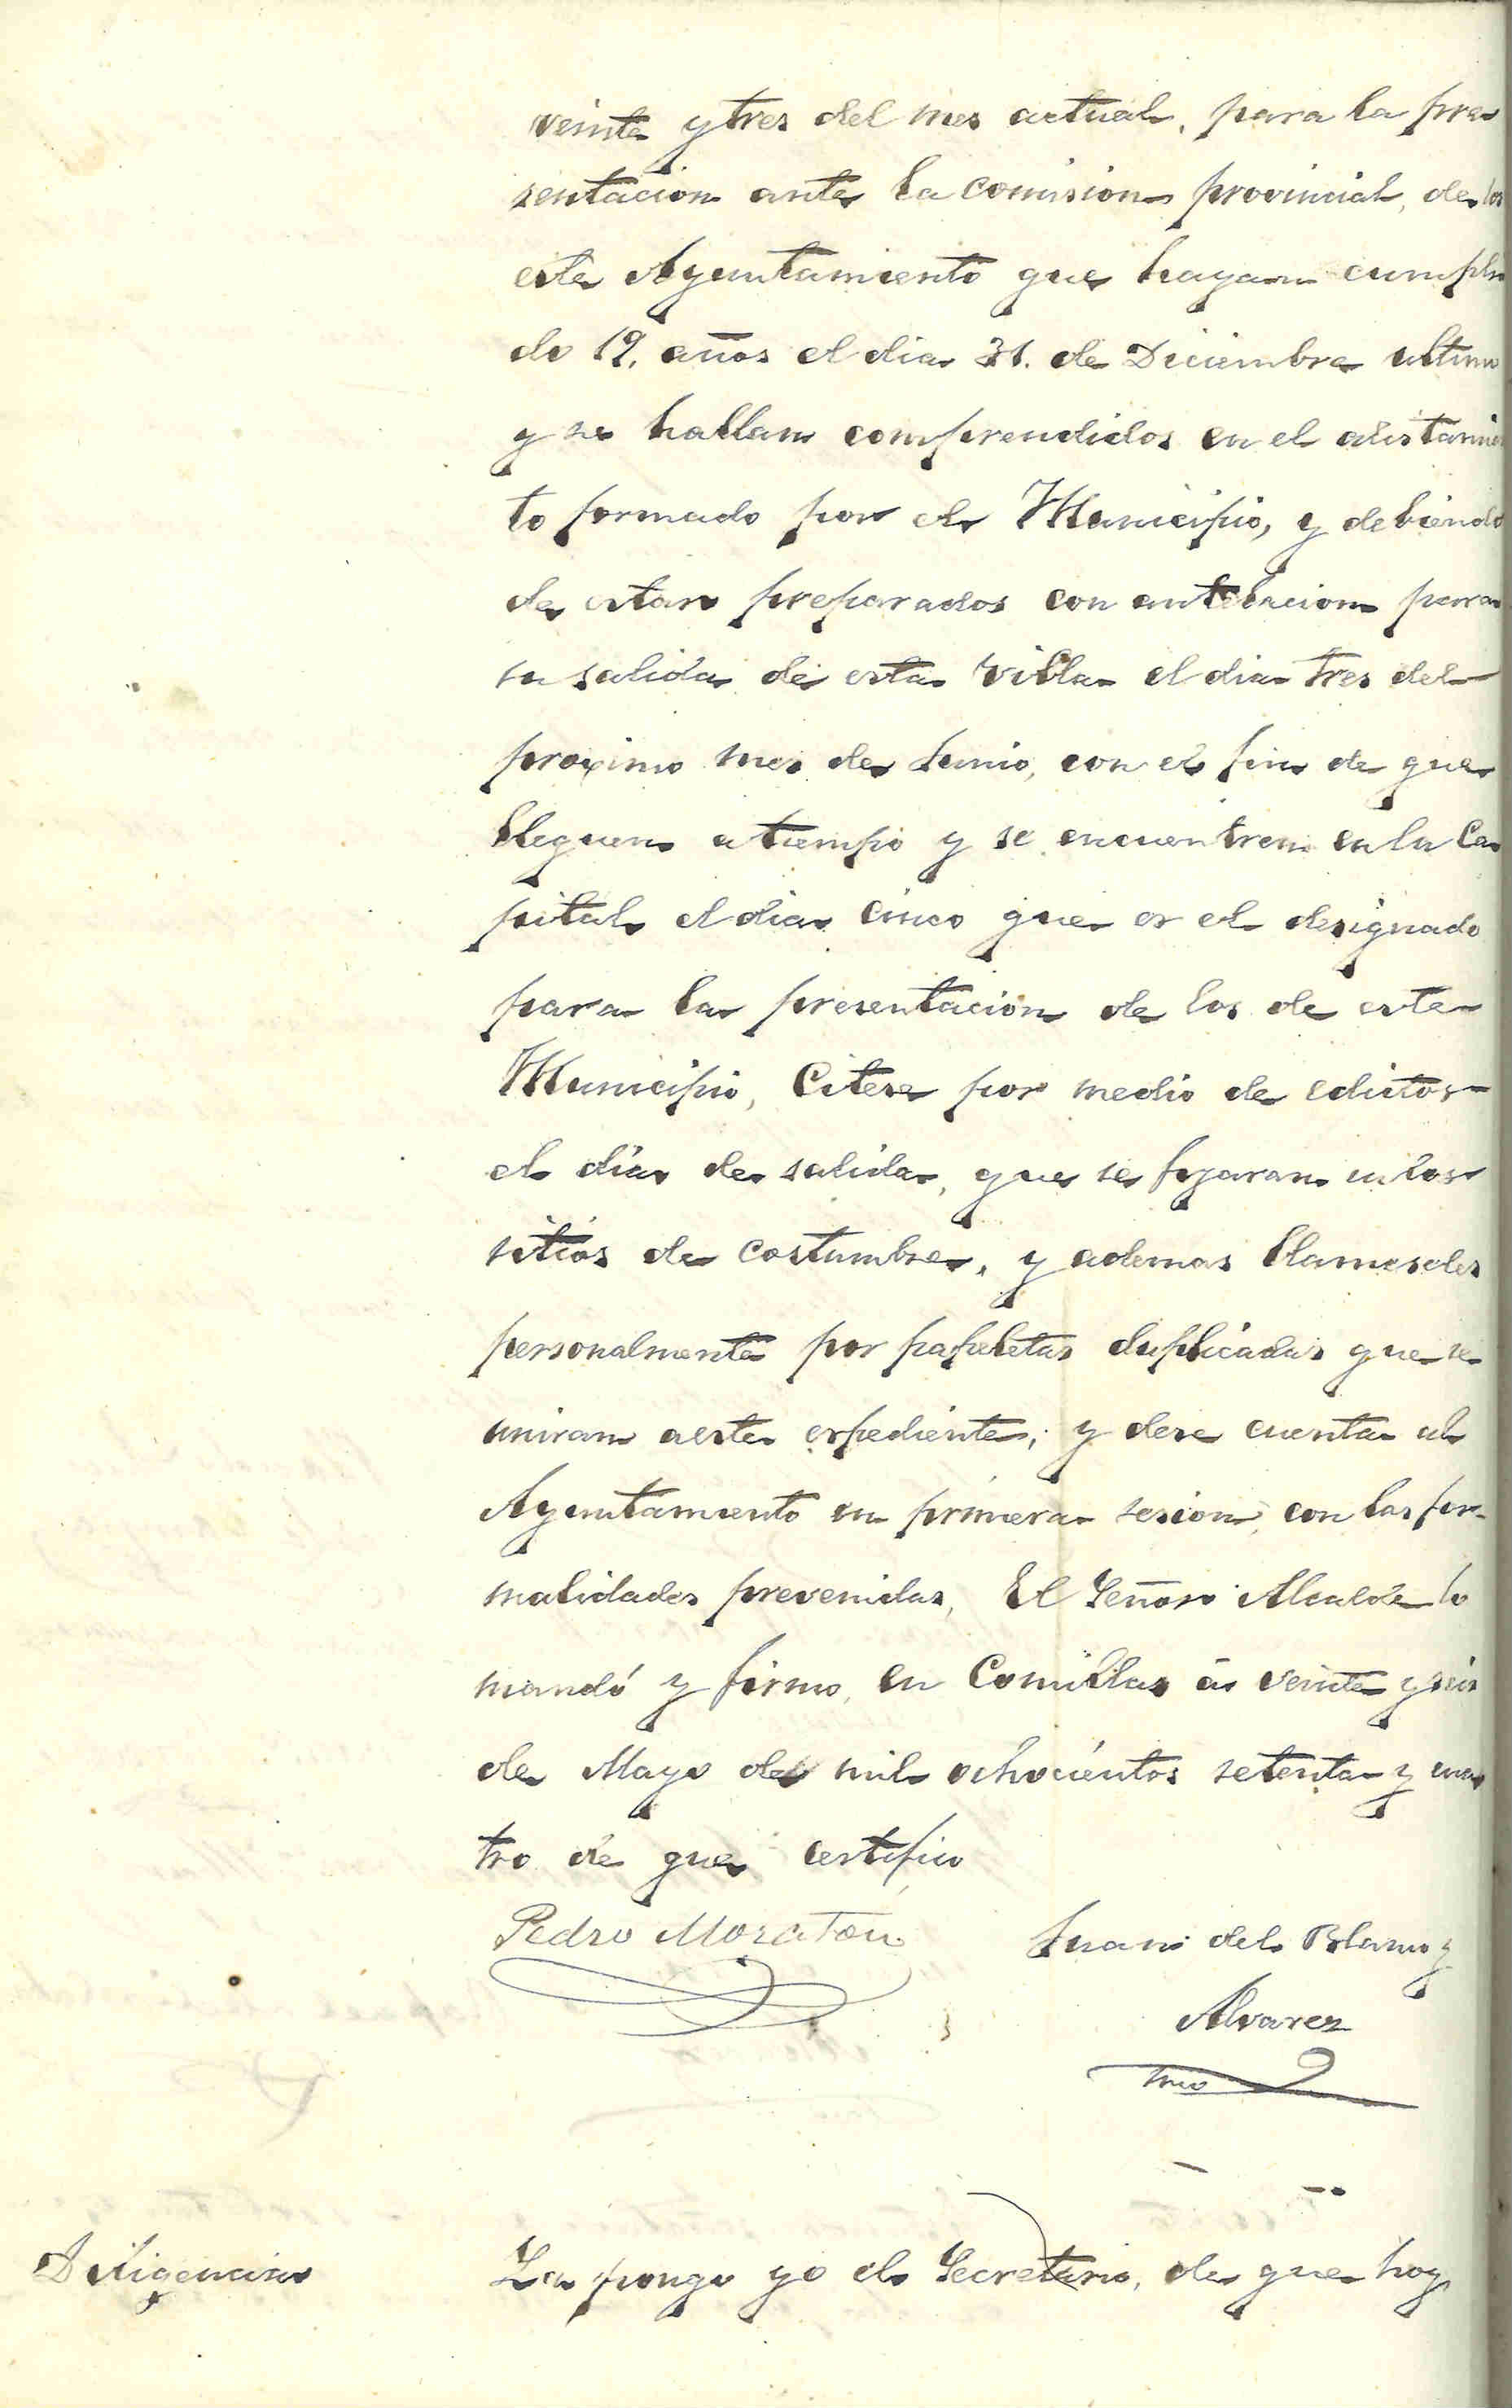 veinte y tres del mes actual, para la pre
sentacion ante la Comision provincial, de los
este Ayuntamiento que hayan cumpli
do 19, años el dia 31. de Diciembre ultimo
y se hallan comprendidos en el alistamien
to formado por el Municipio, y debiendo
de estar preparados con antelacion para
su salida de esta Villa el dia tres del
proximo mes de Junio, con el fin de que
lleguen a tiempo y se encuentren en la Ca
pital el dia cinco que es el designado
para la presentacion de los de este
Municipio, Citese por medio de edictos
el dia de salida, que se fijaran en los
sitios de costumbre, y ademas llameseles
personalmente por papeletas duplicadas que se
uniran a este expediente; y dese cuenta al
Ayuntamiento en primera sesion, con las for-
malidades prevenidas, El Señor Alcalde lo
mandó y firmo, en Comillas á veinte y seis
de Mayo de mil ochocientos setenta y cua
tro de que certifico
Pedro Moraton Juan del Blanco y
Alvarez
Srio
Diligencia La pongo yo el Secretario, de que hoy